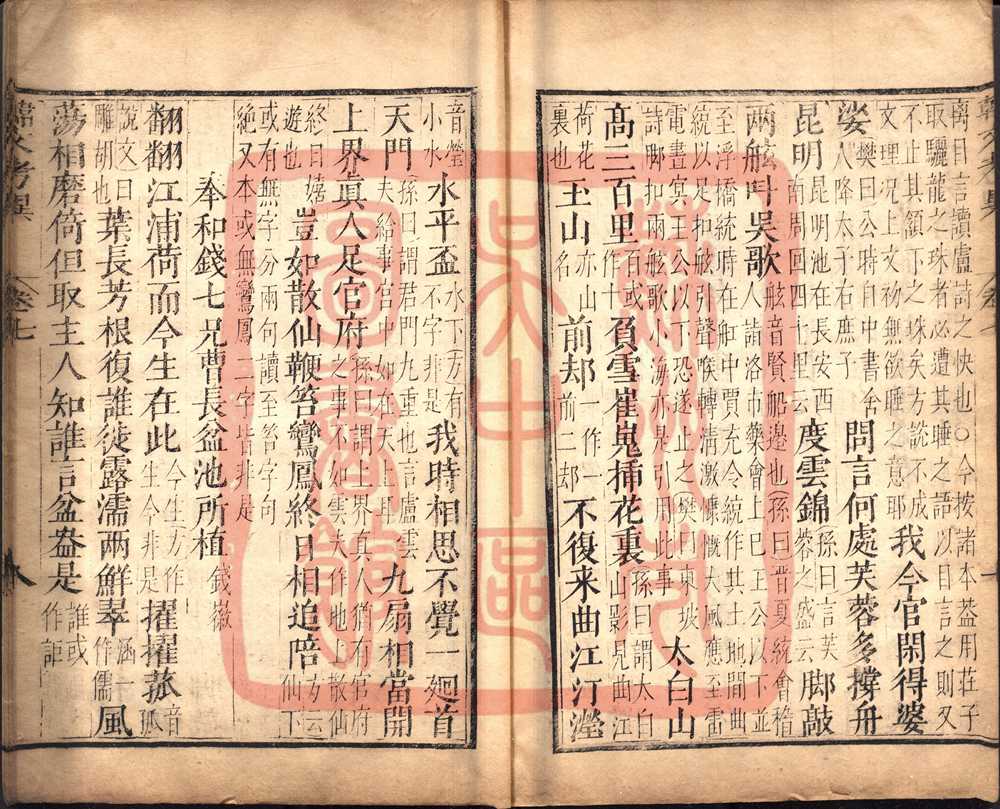 離目言讀盧詩之快也○今按諸本蓋用莊子
取驪龍之珠者必遭其睡之語以目言之則又
不止其頷下之珠矣方說不成
文理况上文初無欲睡之意耶我今官閑得婆
娑夫人降太子右庶子問言何處芙蓉多撐舟
昆明昆明池在長安西南周回四十里云度雲錦孫曰言芙蓉之盛云脚敲
兩舷叫吳歌舷音賢船邊也孫曰晋夏統會稽
至浮橋統時在舡中賈充令統作其土地間曲
統以足扣舷引聲喉轉清激慷慨大風應至雷
電晝㝠王公以下恐遂止之樊曰東坡
詩脚扣兩舷歌小海亦是引用此事太白山
高三百里負雪崔嵬揷花裏山影見曲江
荷花裏也玉山亦山名前却一作一前二却不復来曲江汀瀅
音瑩小水水平盃水下方有不字非是我時相思不覺一廻首
天門孫曰謂君門九重也言盧雲夫給事宫中如在天上耳九扇相當開
上界真人足官府孫曰謂上界真人猶有官府之事不如雲夫作地上散仙
終日嬉遊也豈如散仙鞭笞鸞鳳終日相追陪仙下方云
或有無字分兩句讀至笞字句
絶又本或無鸞鳳二字皆非是
奉和錢七兄曹長盆池所植錢徽
翻翻江浦荷而今生在此今生方作生今非是擢擢菰音孤
說文曰雕胡也葉長芳根復誰徙露濡兩鮮翠涵一作儒風
蕩相磨倚但取主人知誰言盆盎是誰或作詎
韓文考異
卷七